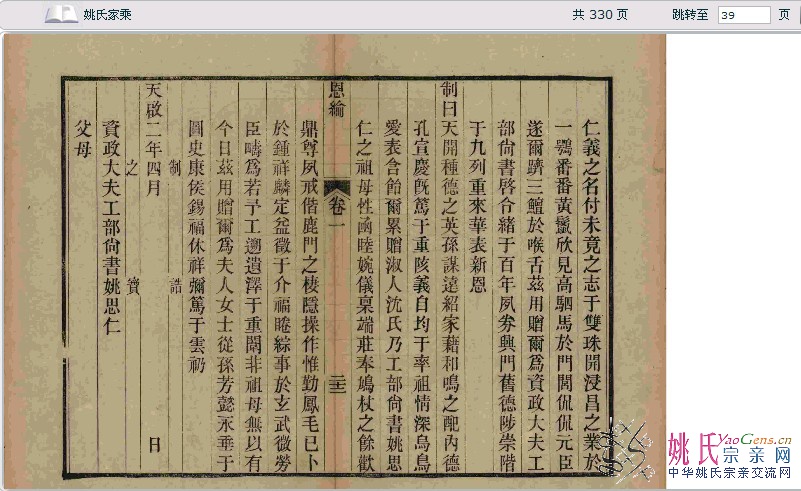 姚氏家乘
共 330 页
跳转至 39 页
仁義之名付未竟之志于雙珠開浸昌之業於
一鶚番番黃鬛欣見高駟馬於門閭侃侃元臣
遂爾躋三鱣於喉舌茲用贈爾爲資政大夫工
部尙書啓合緒于百年夙劵興門舊德陟崇階
于九列重來華表新恩
制曰天開種德之英孫謀遠紹家藉和鳴之配內德
孔宣慶旣篤于重陔義自均于率祖情深烏鳥
愛表含飴爾累贈淑人沈氏乃工部尙書姚思
仁之祖母性函睦婉儀稟端莊奉鳩杖之餘歡
恩綸 卷一
鼎尊夙戒偕鹿門之棲隱操作惟勤鳳毛已卜
於鍾祥麟定益徵于介福睠綜事於玄武微勞
臣疇爲若予工遡遺澤于重闈非祖母無以有
今日茲用贈爾爲夫人女士從孫芳懿永垂于
圖史康侯錫福休祥彌篤于雲礽
制誥
天啟二年四月 日
之寶
資政大夫工部尙書姚思仁
父母
姚氏 YaoGens.cn
宗亲网
中华姚氏宗亲交流网